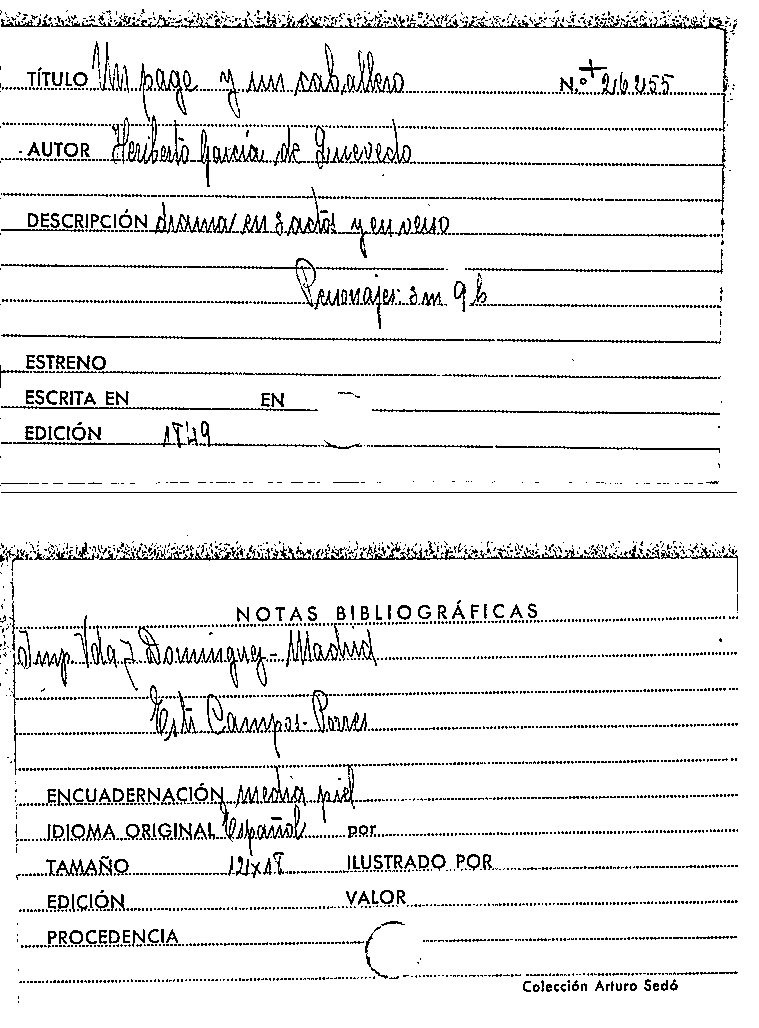 TÍTULO Un page y un caballero N.º + 26255
AUTOR Heriberto García de Quevedo
DESCRIPCIÓN drama en 3 actos y en verso
Personajes: 3 m 9 h
ESTRENO
ESCRITA EN EN
EDICIÓN 1849
NOTAS BIBLIOGRÁFICAS
Imp Vda Dominguez - Madrid
Campos - Porres
ENCUADERNACIÓN media piel
IDIOMA ORIGINAL Español por
TAMAÑO 12x18 ILUSTRADO POR
EDICIÓN VALOR
PROCEDENCIA
Colección Arturo Sedó